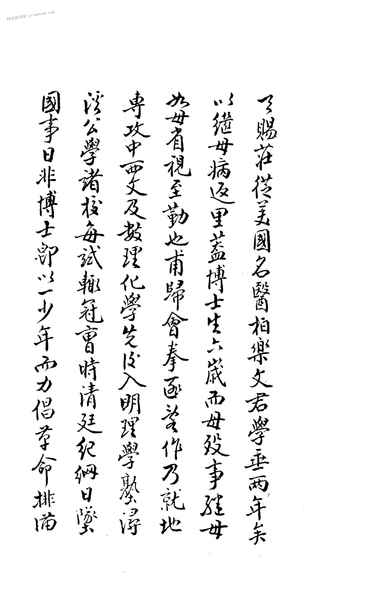 天賜莊從美國名醫柏樂文君學垂兩年矣
以繼母病返里蓋博士生六歲而母歿事繼母
如母省視至勤也甫歸會拳匪亂作乃就地
專攻中西文及數理化學先後入明理學塾潯
溪公學諸校每試輒冠曹時清廷紀綱日墜
國事日非博士卽以一少年而力倡革命排滿